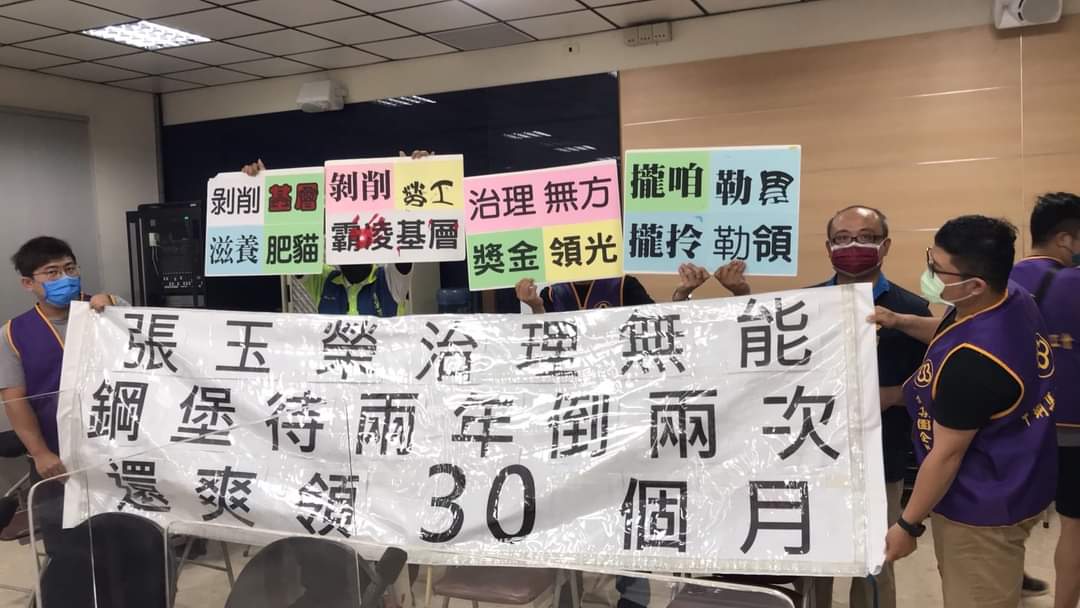 剝削基層
滋養肥貓
剝削勞工
霸凌基層
治理無方
獎金領光
攏咱勒累
攏拎勒領
張玉榮治理無能
鋼堡待兩年倒兩次
還爽領30個月